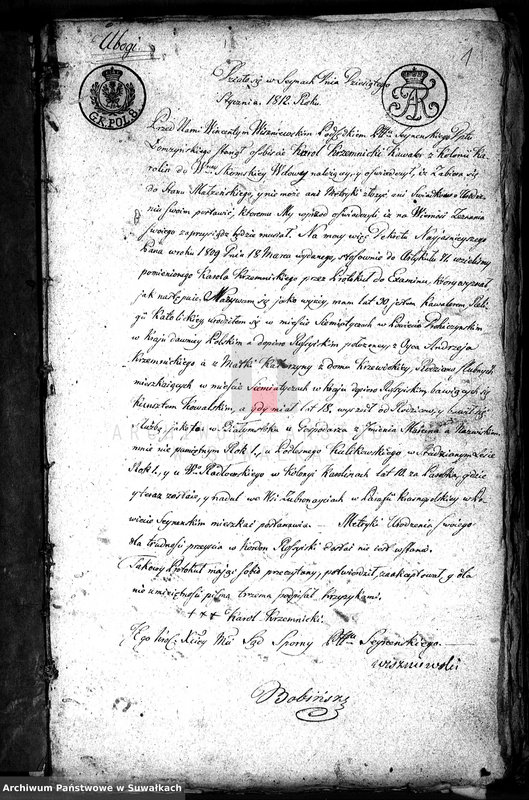 Ubogi.
1
G.K.POL 8.
Działo się w Seynach Dnia Dziesiątego
Stycznia 1812. Roku.
Przed Nami Wincentym Wiszniewskim Podsędkiem Pttu Seynenskiego Dptu
Łomżyńskiego stanął osobiście Karol Krzemnicki Kawaler z Kolonii Ka
rolin do W Skomskiey Wdowy należący, y oświadczył, iż zabiera się
do Stanu Małżeńskiego, y nie może ani Metryki złożyć ani Świadków o Urodze
niu swoim postawić, któremu My wprzód oświadczyli iż na Wierność Zeznania
swoiego zaprzysiądz będzie musiał. Na mocy więc Dekretu Najaśnieyszego
Pana w roku 1809 Dnia 18 Marca wydanego, stosownie do Artykułu 71 wzieliśmy
pomienionego Karola Krzemnickiego przez Protokuł do Examinu, który zeznał
jak następuie. Nazywam się jako wyżey, mam lat 30 jestem kawalerem Reli
gii Katolickiey urodziłem się w mieście Siemiatyczach w Powiecie Drohiczynskim
w kraju dawniey Polskim a dopiero Rossyiskim położonem, z Oyca Andrzeja
Krzemnickiego a z Matki Katarzyny z domu Krzewickiey, Rodziców ślubnych
mieszkaiących w mieście Siemiatyczach w kraju dopiero Rossyiskim bawiących się
kunsztem Kowalskim, a gdy miał lat 18, wyszedł od Rodziców, y bawił się
służbą, jako to: w Białymstoku u Gospodarza z Jmienia Marcina a Nazwiskiem
mnie nie pamiętnym Rok 1, u Podlesnego Kulikowskiego w
Rok 1, y u W Radłowskiego w Kolonyi Karolinach lat 10 za Parobka, gdzie
y teraz zostaie, y nadal we Wsi Żubronayciach w Parafii Krasnopolskiey w Po
wiecie Seynenskim mieszkać postanawia. — Metryki Urodzenia swoiego
dla trudności przeyścia w Kordon Rossyiski dostać nie jest w stanie.
Takowy Protokuł maiąc sobie przeczytany, potwierdził, zaakceptował, y dla
nie umieiętności pisma trzema podpisał krzyżykami.
+ + + Karol Krzemnicki.
Jego Król. Xcey Mci Sąd Sporny Pttu Seynenskiego
Wiszniewski
Bobiński
Archiwum Państwowe w Suwałkach